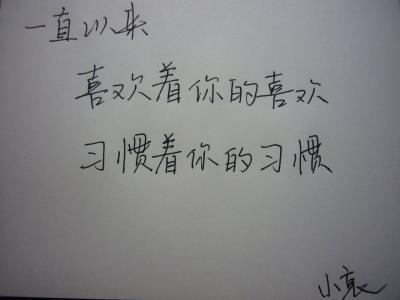 一直以来
喜欢着你的喜欢
习惯着你的习惯
小哀